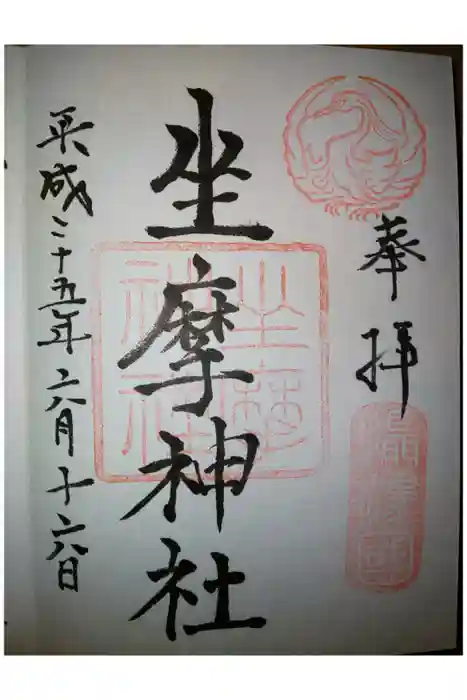 奉拝
坐摩神社
坐摩
神社
平成二十五年六月十六日